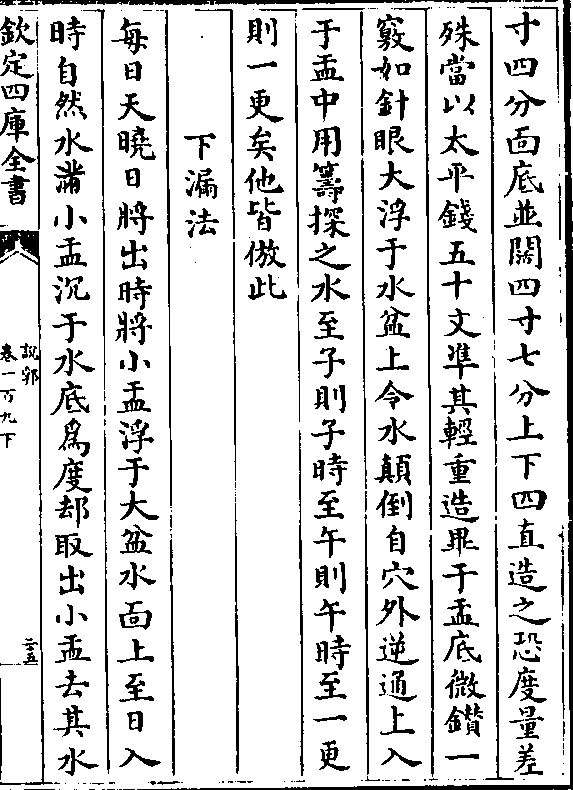 寸四分面底並闊四寸七分上下四直造之恐度量差
殊當以太平錢五十文準其輕重造畢于盂底微鑚一
竅如針眼大浮于水盆上令水顛倒自穴外逆通上入
于盂中用籌探之水至子則子時至午則午時至一更
則一更矣他皆倣此
下漏法
每日天曉日將出時將小盂浮于大盆水面上至日入
時自然水滿小盂沉于水底為度却取出小盂去其水
欽定四庫全書
說郛
卷一百九下
二十五